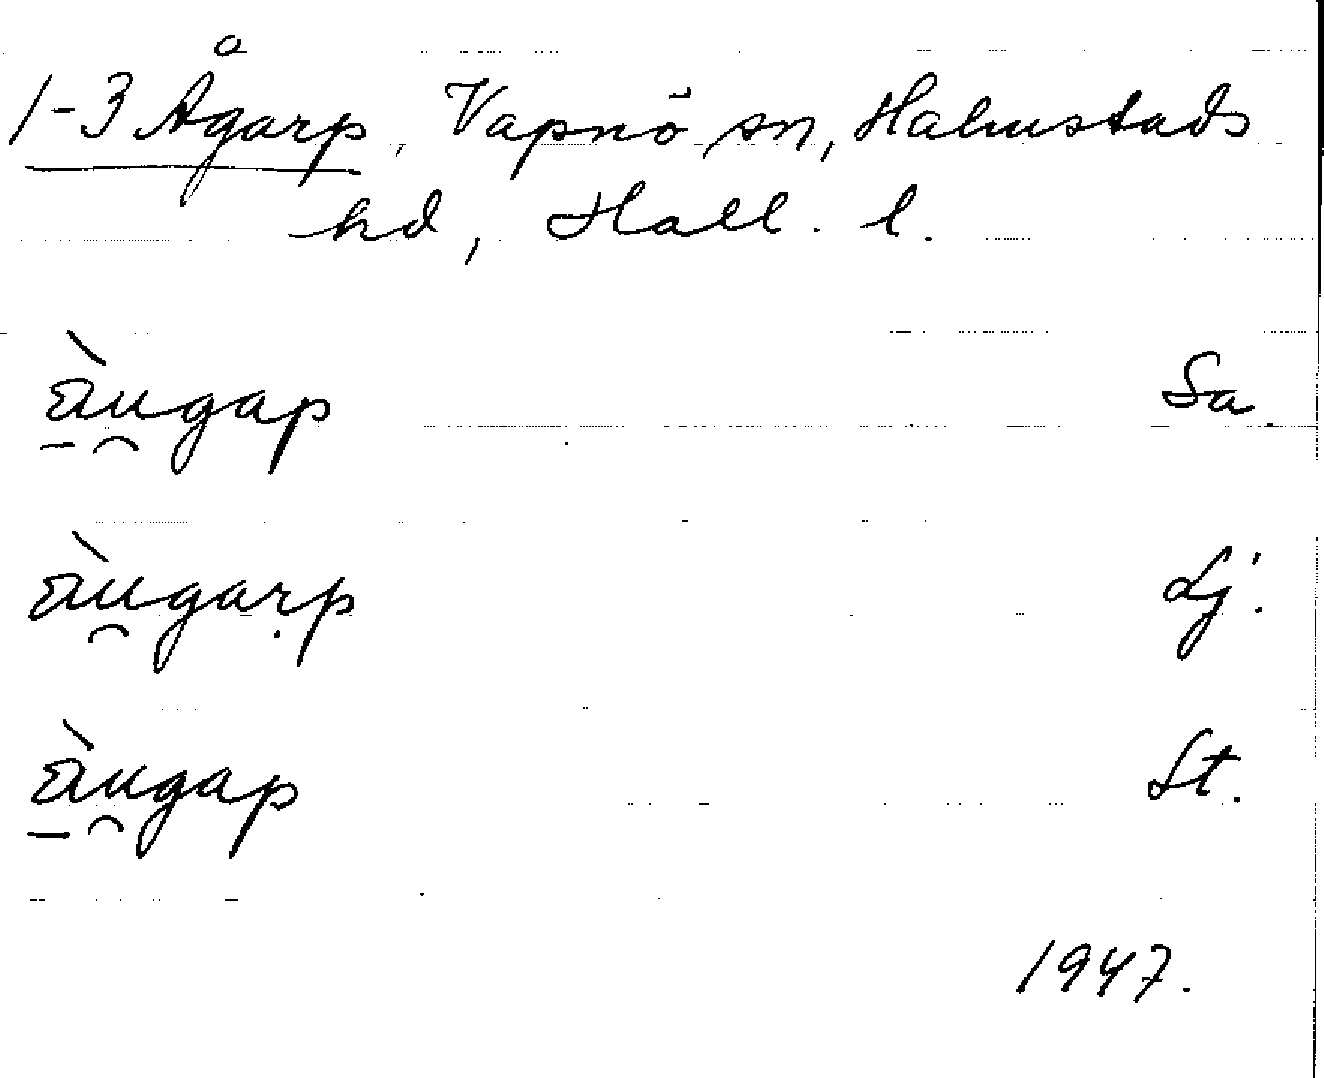 1-3 Ågarp, Vapnö sn, Halmstads
hd, Hall. l.
àu̯gap Sa.
àu̯gaṛp Lj.
àu̯gap St.
1947.